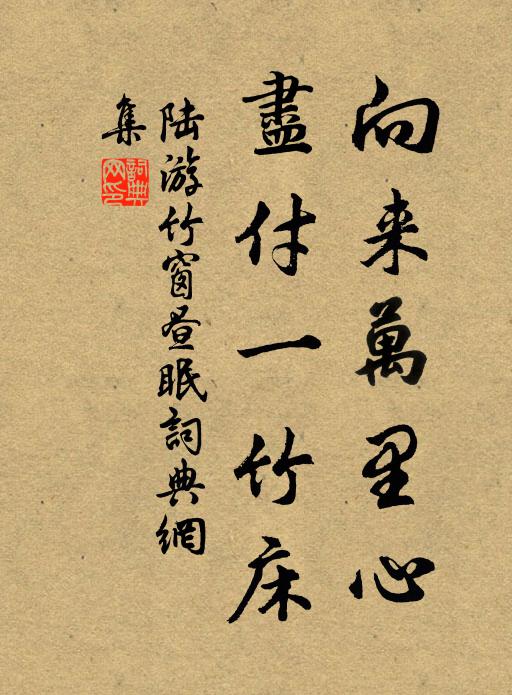 向来萬里心
盡付一竹床
陆游竹窗昼眠詞典網
集
詞典
网印